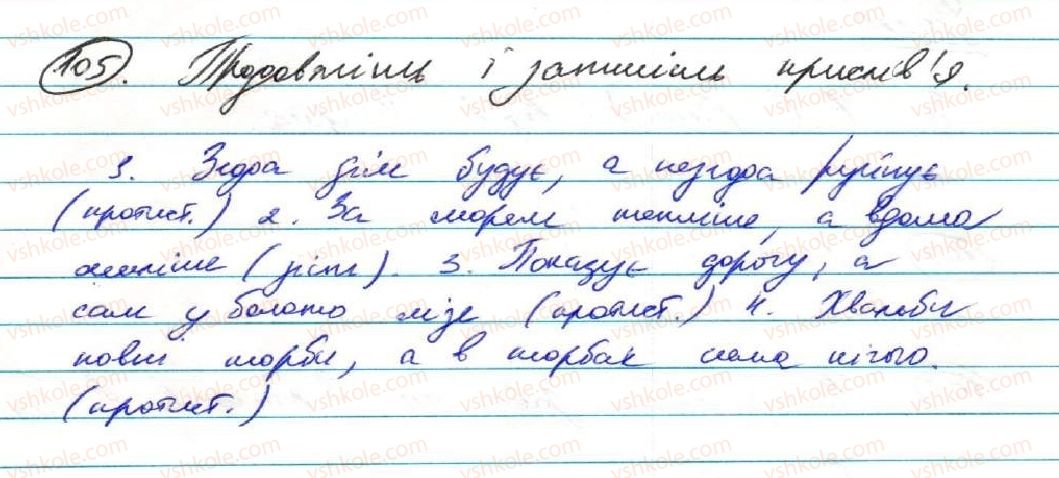 105. Продовжіть і запишіть прислів'я.
1. Згода дім будує, а незгода руйнує
(протист.) 2. За морем тепліше, а вдома
миліше (зіст.). 3. Показує дорогу, а
сам у болото лізе (протист.) 4. Хвальби
повні торби, а в торбах нема нічого.
(протист.)